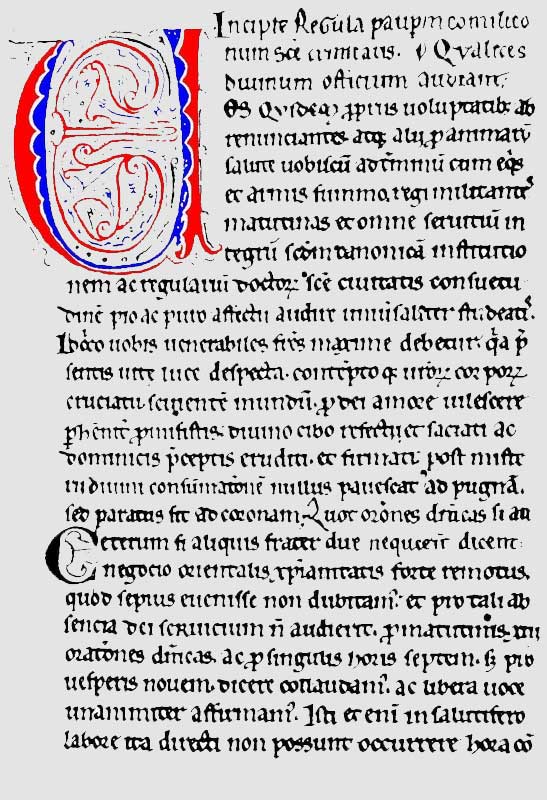 Incipit Regula paupm comilito
num sce ciuitatis. Qualit͛
diuinum officium audiant.
os quidem ꝓpriis uoluptatib; ab
renunciantes atq; alii ꝓ animarū
salute uobiscū ad t̉minū cum eqis
et armis summo regi militantes
matutinas et omne seruitiū in
tegrū scdm canonicā institutio
nem ac regulariū doctoꝝ sce ciuitatis consuetu
dinē pio ac puro affectu audire uniu̓saliter studeatis.
Idcirco uobis uenerabiles frēs maxime debetur q̄a p̄
sentis uite luce despecta. contēpto q; uroꝝ corpoꝝ
cruciatu. seuientē mundū ꝓ dei amore uilescere
ꝑhēnit̓ ꝓmisistis. diuino cibo refecti et saciati ac
dominicis p̄ceptis eruditi. et firmati post miste
rii diuini consūmatōnē nullus pauescat ad pugnā.
sed paratus sit ad coronam. Quot orōnes dn̄icas si au
Ceterum si aliquis frater due nequeerit dicent:
negocio orientalis xp̄ianitatis forte remotus.
quod sepius euenisse non dubitam̓. et pro tali ab
sencia dei seruicium n̄ audierit. ꝓ matutinis. xiii
oratōnes dn̄icas. ac ꝓ singulis horis septem. s; pro
uesperis nouem. dicere collaudam̓. ac libera uoce
unanimiter affirmam̓. Isti et enī in salutifero
labore ita directi non possunt occurrere hora cō